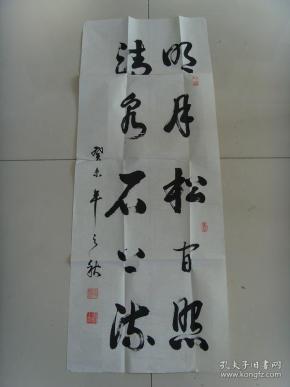 明月松间照
清泉石上流
癸未年之秋
孔夫子旧书网